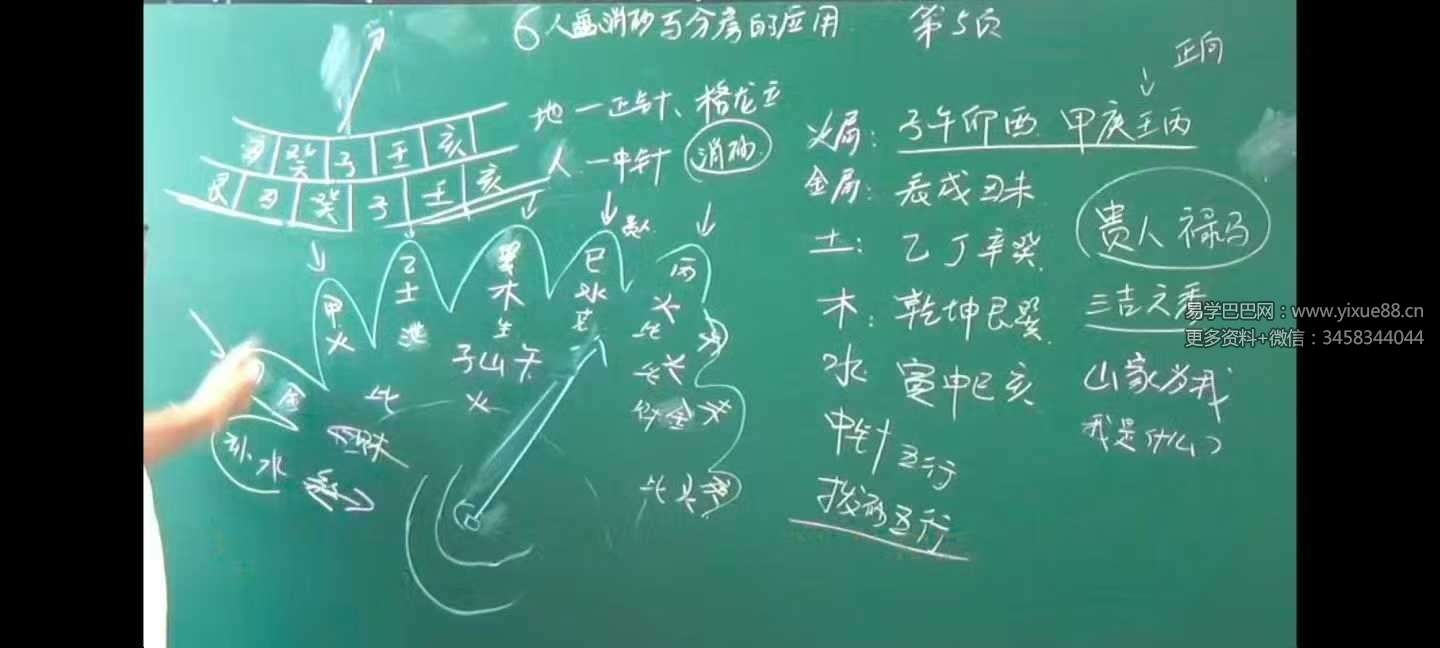 6 人盘消砂与分房的应用 第5页
正向
地一正针、格龙立
人一中针 消砂
癸 子 壬 亥
艮 丑 癸 子 壬 亥
火局: 子午卯酉 甲庚壬丙
金局: 辰戌丑未
土: 乙丁辛癸
木: 乾坤艮巽
水: 寅申巳亥
中针五行
拨砂五行
贵人 禄马
山家为我
我是什么?
甲 乙 巽 巳 丙
火 土 木 水 火
泄 生 比
子山午
火
金 比
水
金
易学巴巴网：www.yixue88.cn
更多资料+微信：3458344044